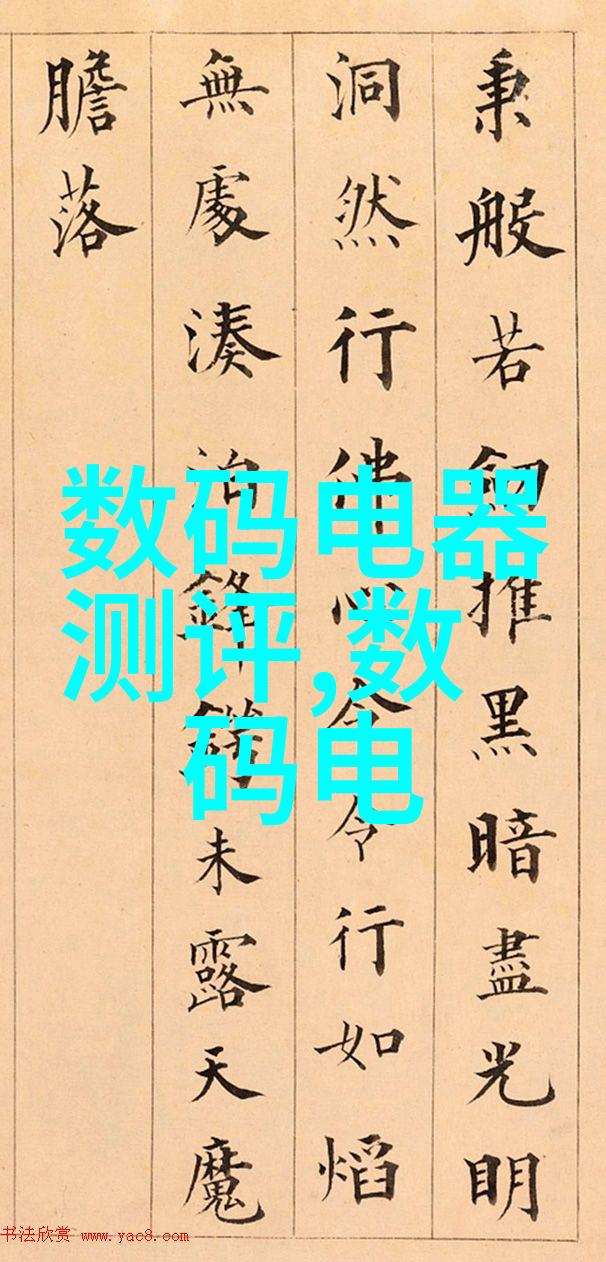 秉般若推黑暗盡光明
洞然行佛心令令行如熖
無處湊泊鋒鋩未露天魔
膽落
数码电器
测评,数
码电
书法欣赏 www.yac8.com